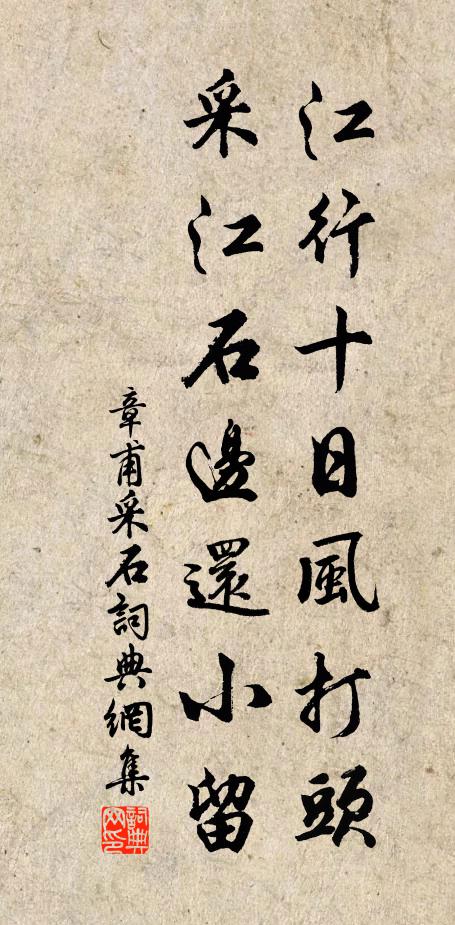 江行十日風打頭
采江石邊還小留
章甫采石詞典網集
詞典
网印